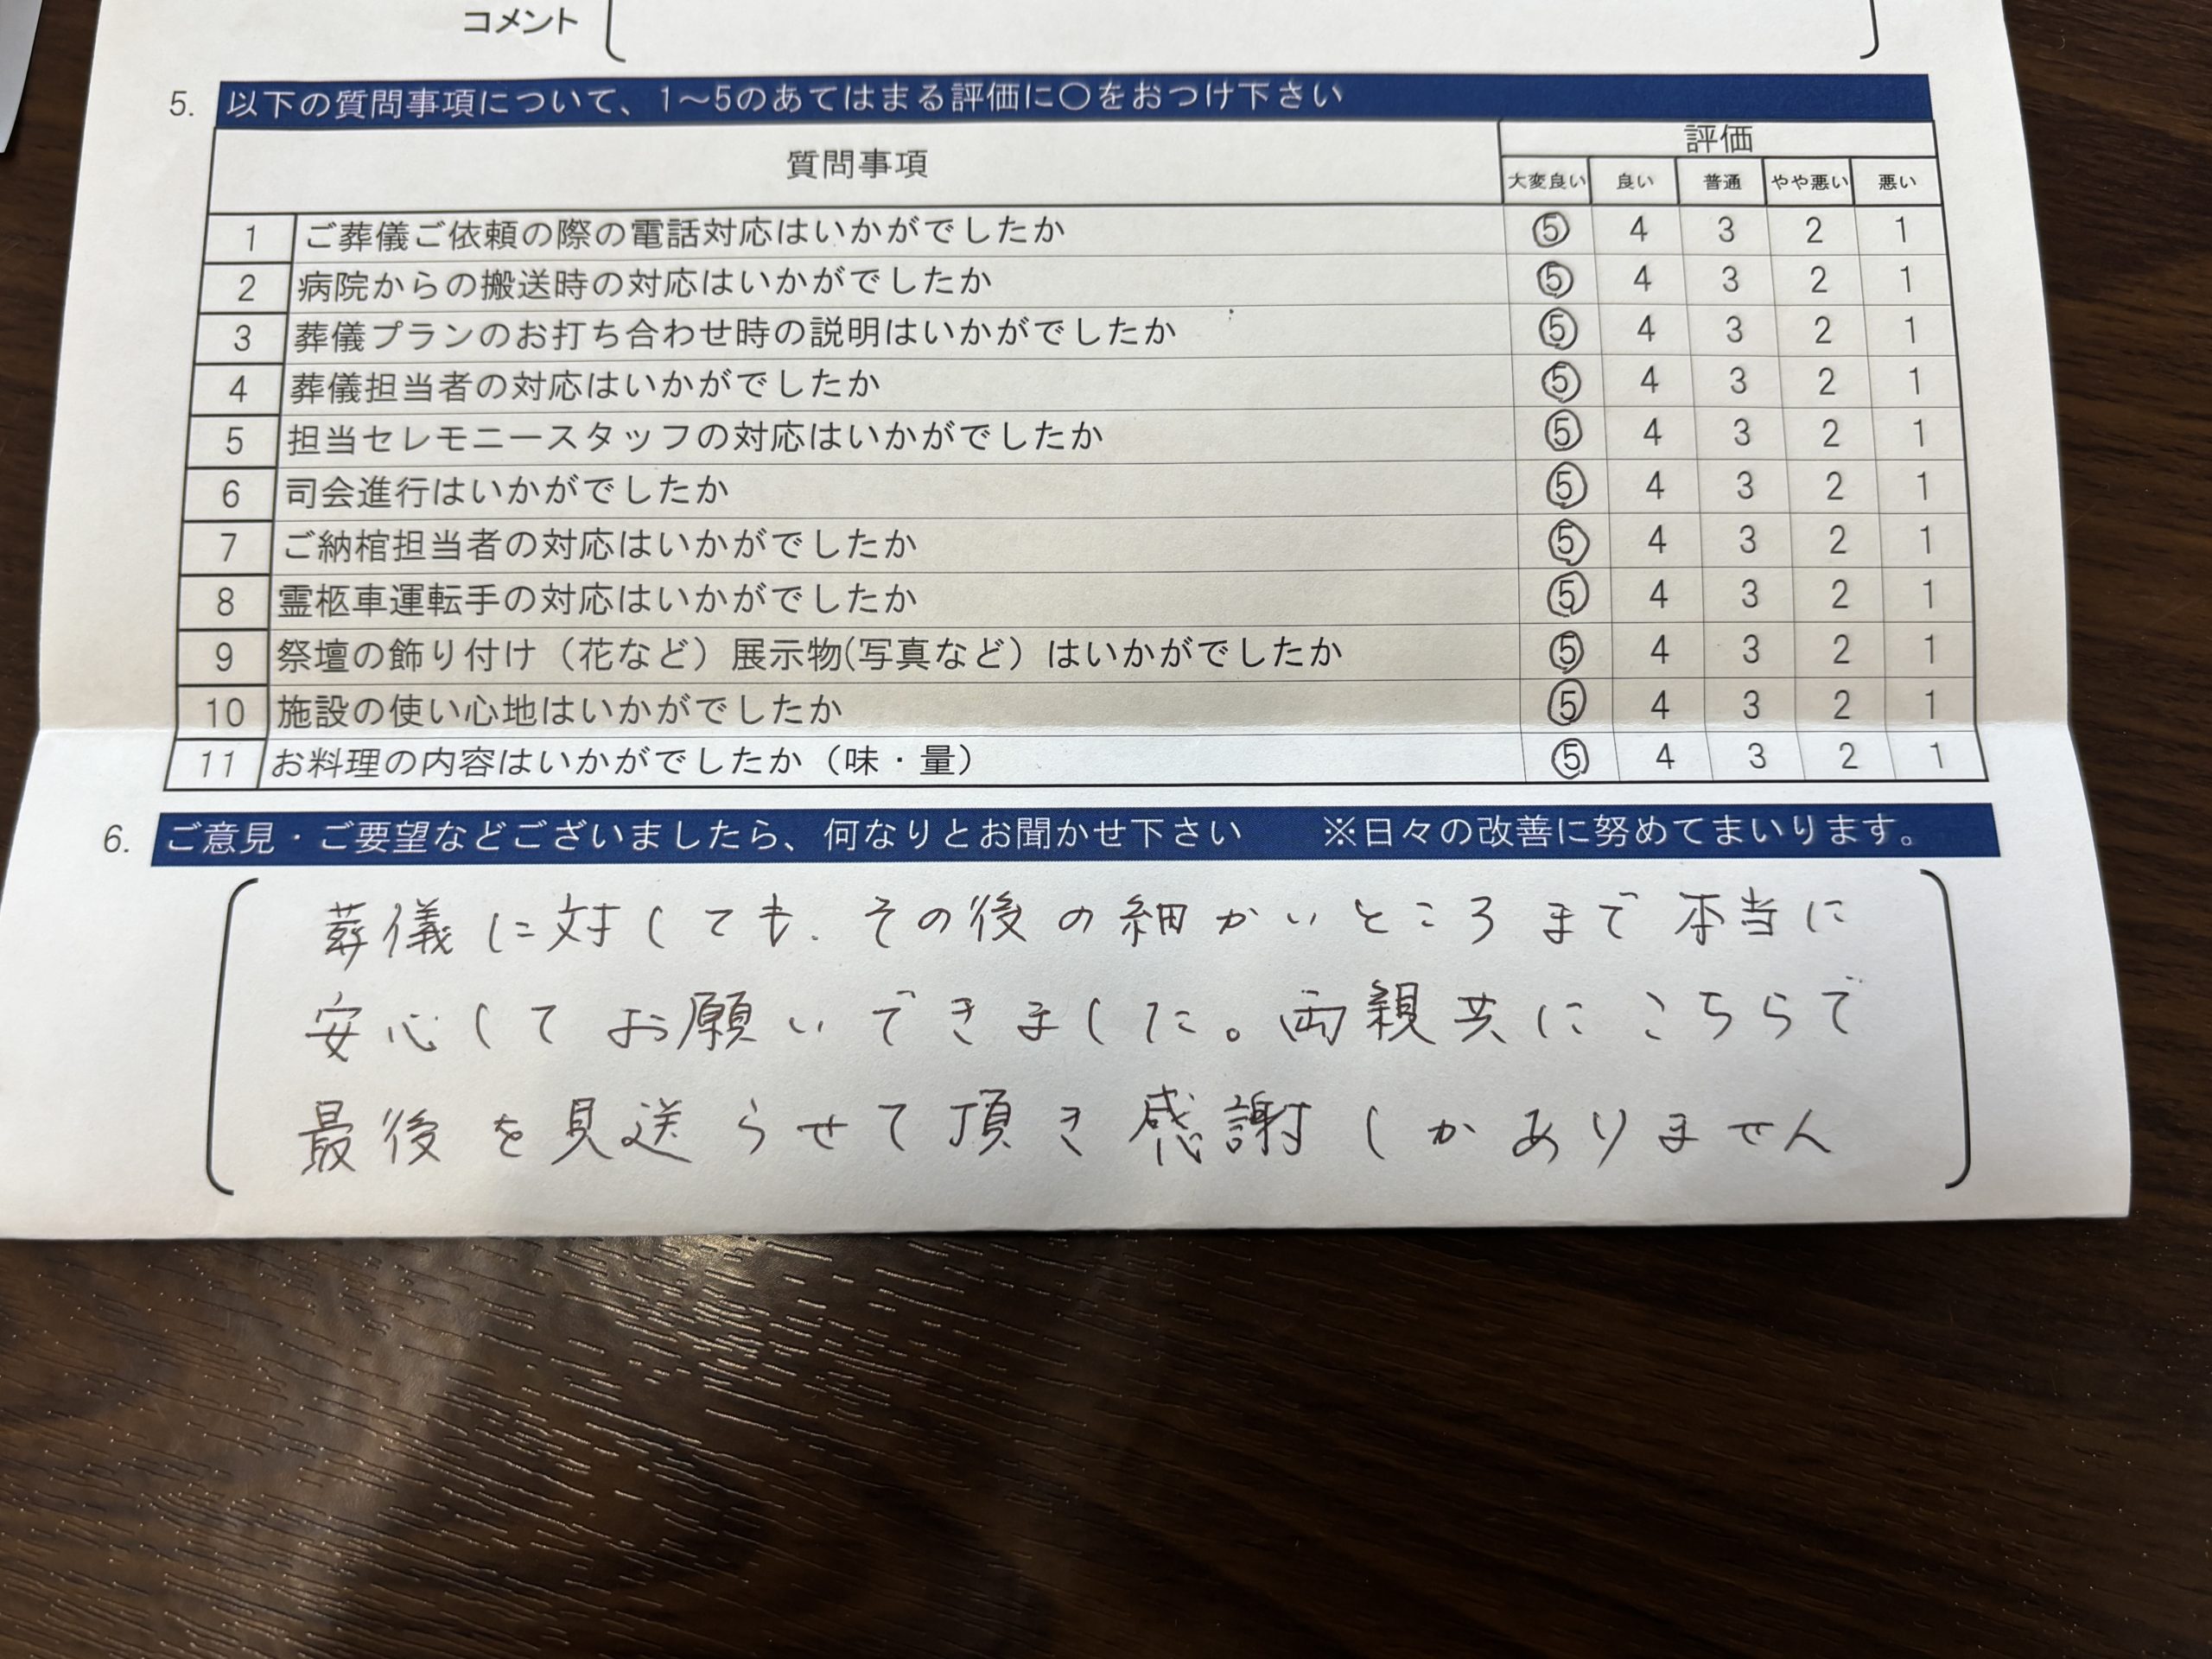 コメント
5. 以下の質問事項について、1～5のあてはまる評価に〇をおつけ下さい
質問事項 評価
大変良い 良い 普通 やや悪い 悪い
1 ご葬儀ご依頼の際の電話対応はいかがでしたか 5 4 3 2 1
2 病院からの搬送時の対応はいかがでしたか 5 4 3 2 1
3 葬儀プランのお打ち合わせ時の説明はいかがでしたか 5 4 3 2 1
4 葬儀担当者の対応はいかがでしたか 5 4 3 2 1
5 担当セレモニースタッフの対応はいかがでしたか 5 4 3 2 1
6 司会進行はいかがでしたか 5 4 3 2 1
7 ご納棺担当者の対応はいかがでしたか 5 4 3 2 1
8 霊柩車運転手の対応はいかがでしたか 5 4 3 2 1
9 祭壇の飾り付け（花など）展示物(写真など）はいかがでしたか 5 4 3 2 1
10 施設の使い心地はいかがでしたか 5 4 3 2 1
11 お料理の内容はいかがでしたか（味・量） 5 4 3 2 1
6. ご意見・ご要望などございましたら、何なりとお聞かせ下さい ※日々の改善に努めてまいります。
葬儀に対しても、その後の細かいところまで本当に
安心してお願いできました。両親共にこちらで
最後を見送らせて頂き感謝しかありません